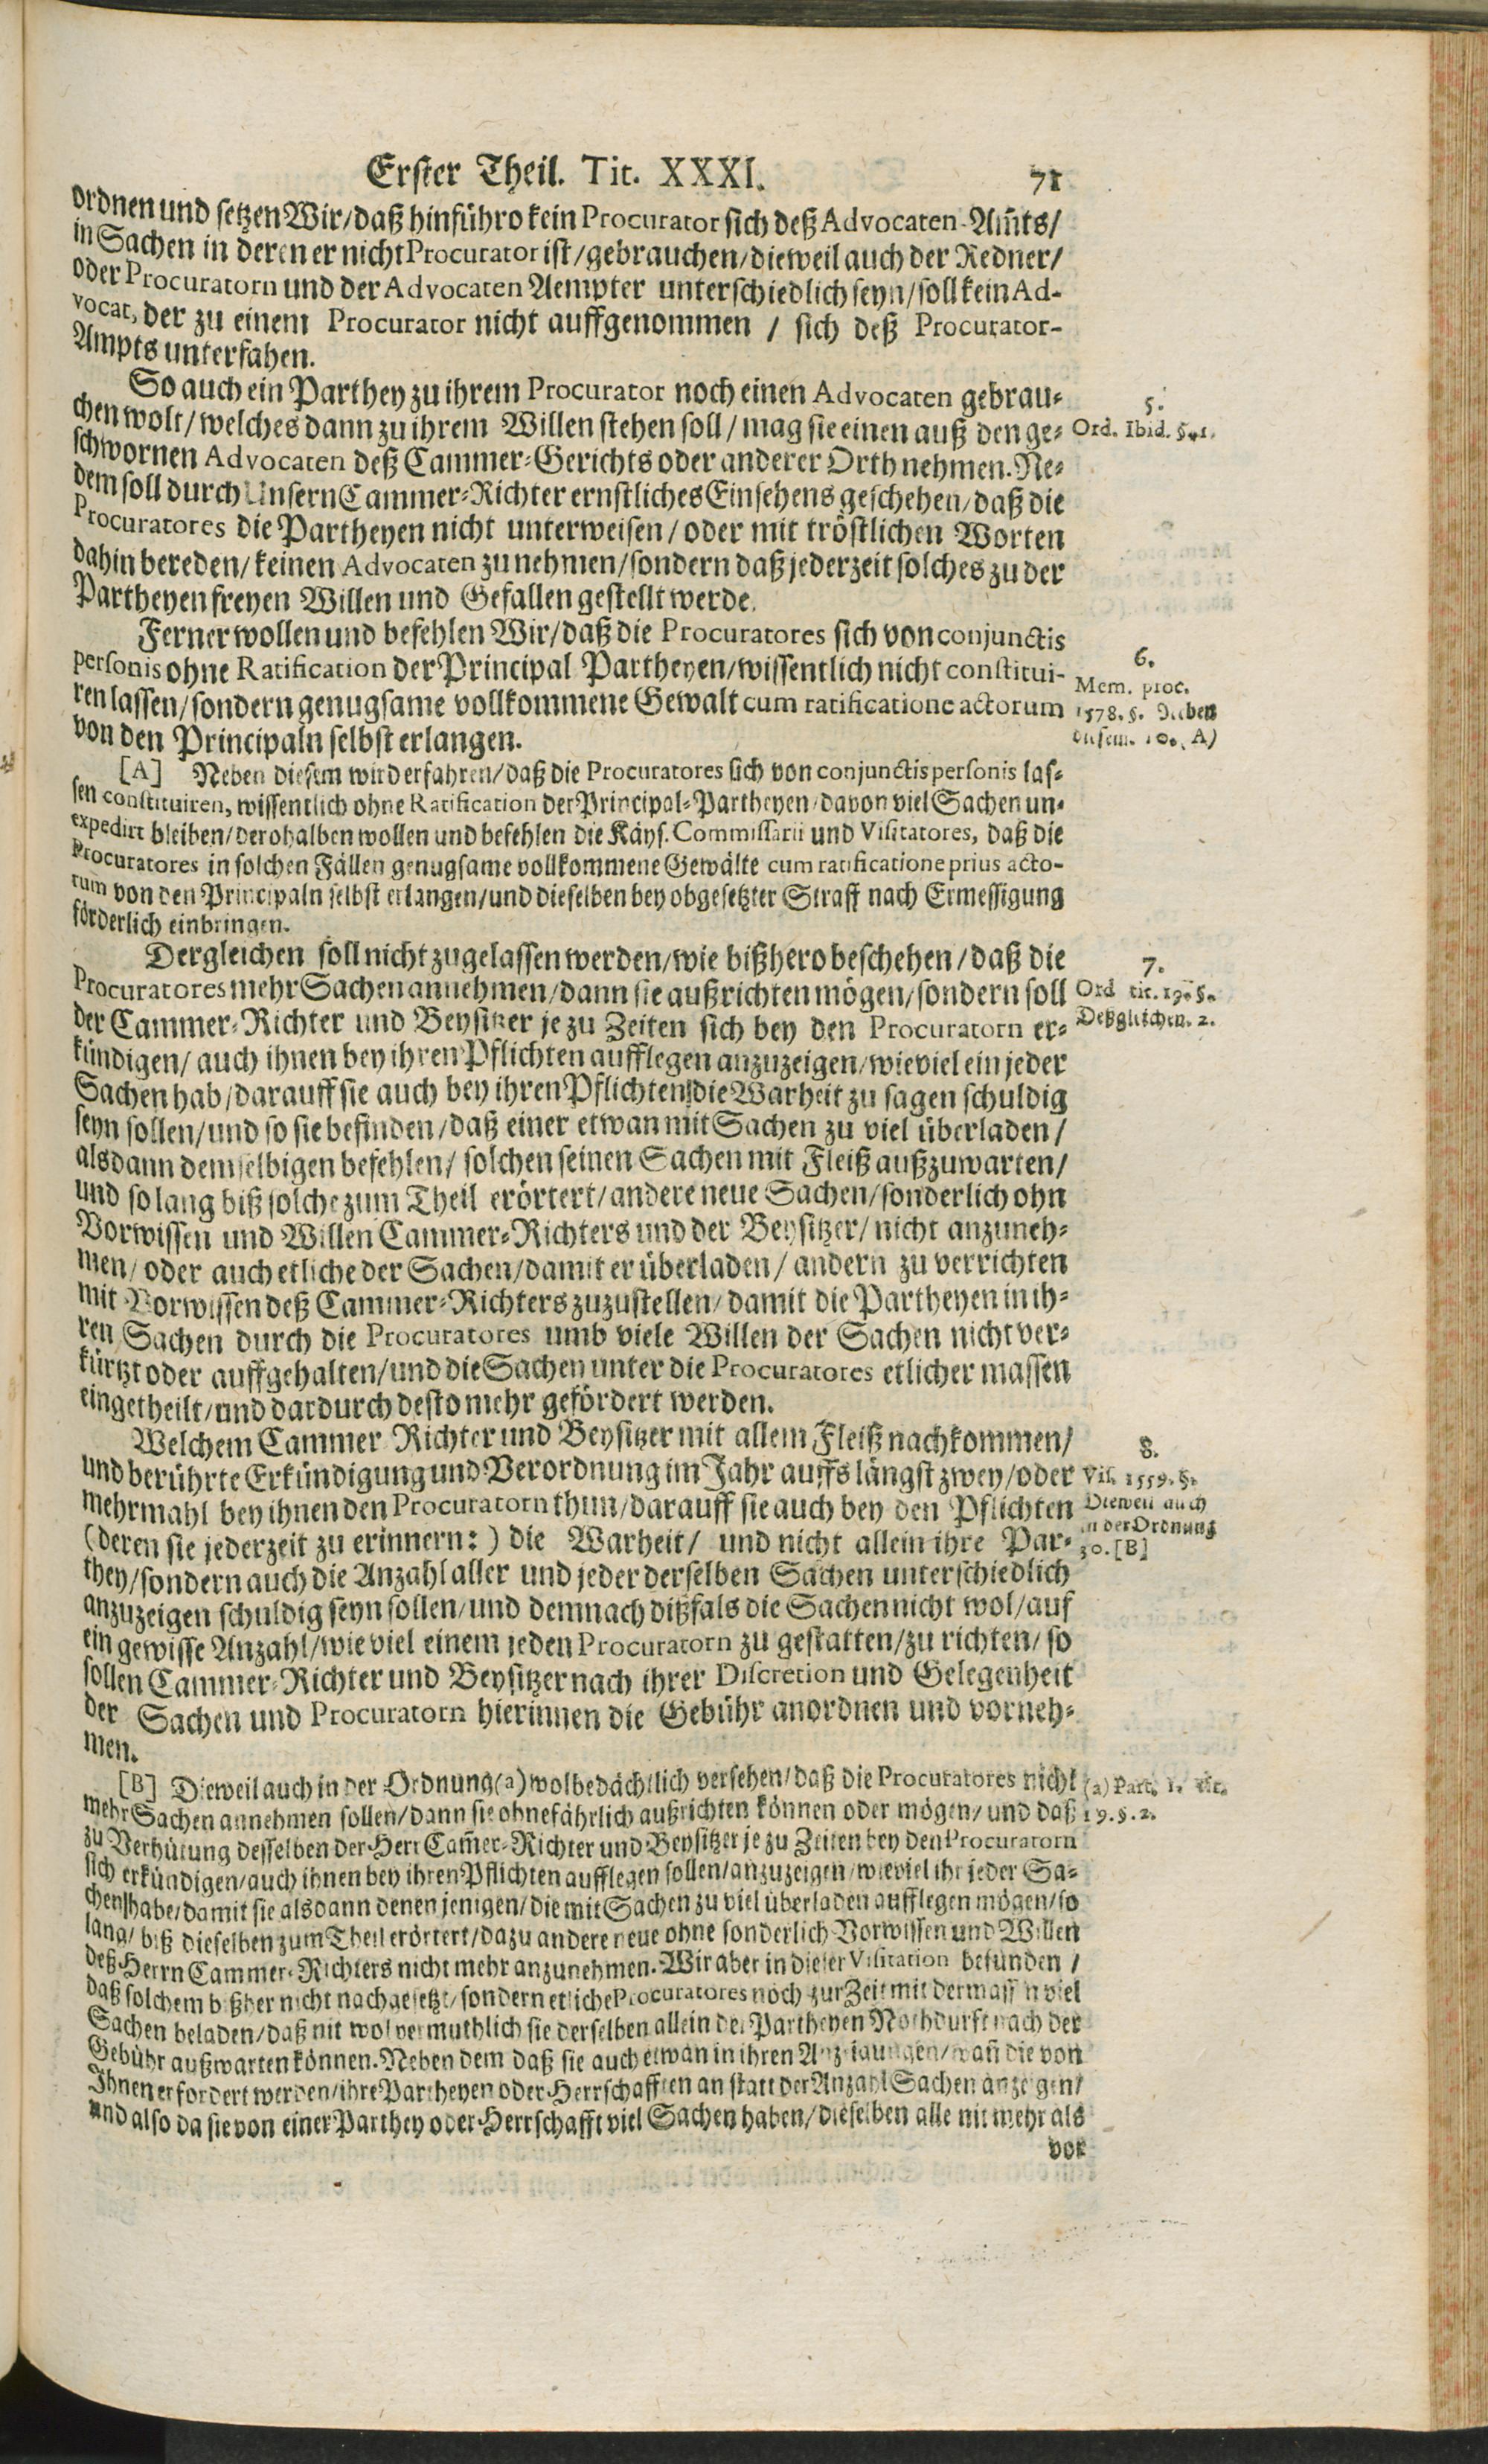 Erster Theil. Tit. XXXI. 71
ordnen und setzen Wir/daß hinführo kein Procurator sich deß Advocaten-Am̃ts/
in Sachen in deren er nicht Procurator ist/gebrauchen/dieweil auch der Redner/
oder Procuratorn und der Advocaten Aempter unterschiedlich seyn/soll kein Ad-
vocat, der zu einem Procurator nicht auffgenommen / sich deß Procurator-
Ampts unterfahen.
So auch ein Parthey zu ihrem Procurator noch einen Advocaten gebrau-
chen wolt/welches dann zu ihrem Willen stehen soll/mag sie einen auß den ge-
schwornen Advocaten deß Cammer-Gerichts oder anderer Orth nehmen. Ne-
dem soll durch Unsern Cammer-Richter ernstliches Einsehens geschehen/daß die
Procuratores die Partheyen nicht unterweisen/oder mit tröstlichen Worten
dahin bereden/keinen Advocaten zu nehmen/sondern daß jederzeit solches zu der
Partheyen freyen Willen und Gefallen gestellt werde.
5.
Ord. Ibid. §. 1.
Ferner wollen und befehlen Wir/daß die Procuratores sich von conjunctis
personis ohne Ratification der Principal Partheyen/wissentlich nicht constitui-
ren lassen/sondern genugsame vollkommene Gewalt cum ratificatione actorum
von den Principaln selbst erlangen.
6.
Mem. proc.
1578. §. Neben
diesem. 10. A)
[A] Neben diesem wird erfahren/daß die Procuratores sich von conjunctis personis las-
sen constituiren, wissentlich ohne Ratification der Principal-Partheyen/davon viel Sachen un-
expedirt bleiben/derohalben wollen und befehlen die Käys. Commissarii und Visitatores, daß die
Procuratores in solchen Fällen genugsame vollkommene Gewälte cum ratificatione prius acto-
rum von den Principaln selbst erlangen/und dieselben bey obgesetzter Straff nach Ermessigung
förderlich einbringen.
Dergleichen soll nicht zugelassen werden/wie bißhero beschehen/daß die
Procuratores mehr Sachen annehmen/dann sie außrichten mögen/sondern soll
der Cammer-Richter und Beysitzer je zu Zeiten sich bey den Procuratorn er-
kündigen/auch ihnen bey ihren Pflichten aufflegen anzuzeigen/wie viel ein jeder
Sachen hab/darauff sie auch bey ihren Pflichten die Warheit zu sagen schuldig
seyn sollen/und so sie befinden/daß einer etwan mit Sachen zu viel überladen/
alsdann demselbigen befehlen/solchen seinen Sachen mit Fleiß außzuwarten/
und so lang biß solche zum Theil erörtert/andere neue Sachen/sonderlich ohn
Vorwissen und Willen Cammer-Richters und der Beysitzer/nicht anzuneh-
men/oder auch etliche der Sachen/damit er überladen/andern zu verrichten
mit Vorwissen deß Cammer-Richters zuzustellen/damit die Partheyen in ih-
ren Sachen durch die Procuratores umb viele Willen der Sachen nicht ver-
kürtzt oder auffgehalten/und die Sachen unter die Procuratores etlicher massen
eingetheilt/und dardurch desto mehr gefördert werden.
7.
Ord tit. 19. §.
Deßgleichen. 2.
Welchem Cammer Richter und Beysitzer mit allem Fleiß nachkommen/
und berührte Erkündigung und Verordnung im Jahr auffs längst zwey/oder
mehrmahl bey ihnen den Procuratorn thun/darauff sie auch bey den Pflichten
(deren sie jederzeit zu erinnern:) die Warheit/ und nicht allein ihre Par-
they/sondern auch die Anzahl aller und jeder derselben Sachen unterschiedlich
anzuzeigen schuldig seyn sollen/und demnach dißfals die Sachen nicht wol/auf
ein gewisse Anzahl/wie viel einem jeden Procuratorn zu gestatten/zu richten/so
sollen Cammer-Richter und Beysitzer nach ihrer Discretion und Gelegenheit
der Sachen und Procuratorn hierinnen die Gebühr anordnen und vorneh-
men.
8.
Vis. 1559. §.
Dieweil auch
in der Ordnung
30. [B]
[B] Dieweil auch in der Ordnung(a) wolbedächtlich versehen/daß die Procuratores nicht
mehr Sachen annehmen sollen/dann sie ohnefährlich außrichten können oder mögen/und daß
zu Verhütung desselben der Herr Cam̃er-Richter und Beysitzer je zu Zeiten bey den Procuratorn
sich erkündigen/auch ihnen bey ihren Pflichten aufflegen sollen/anzuzeigen/wieviel ihr jeder Sa-
chen habe/damit sie alsdann denen jenigen/die mit Sachen zu viel überladen aufflegen mögen/so
lang/biß dieselben zum Theil erörtert/dazu andere neue ohne sonderlich Vorwissen und Willen
deß Herrn Cammer-Richters nicht mehr anzunehmen. Wir aber in dieser Visitation befunden /
daß solchem bißher nicht nachgesetzt/sondern etliche Procuratores noch zur Zeit mit dermassen viel
Sachen beladen/daß nit wol vermuthlich sie derselben allein der Partheyen Nothdurft nach der
Gebühr außwarten können. Neben dem daß sie auch etwan in ihren Anzeigungen/wañ die von
Ihnen erfordert werden/ihre Partheyen oder Herrschafften an statt der Anzahl Sachen anzeigen/
und also da sie von einer Parthey oder Herrschafft viel Sachen haben/dieselben alle nit mehr als
(a) Part. 1. tit.
19. §. 2.
vor